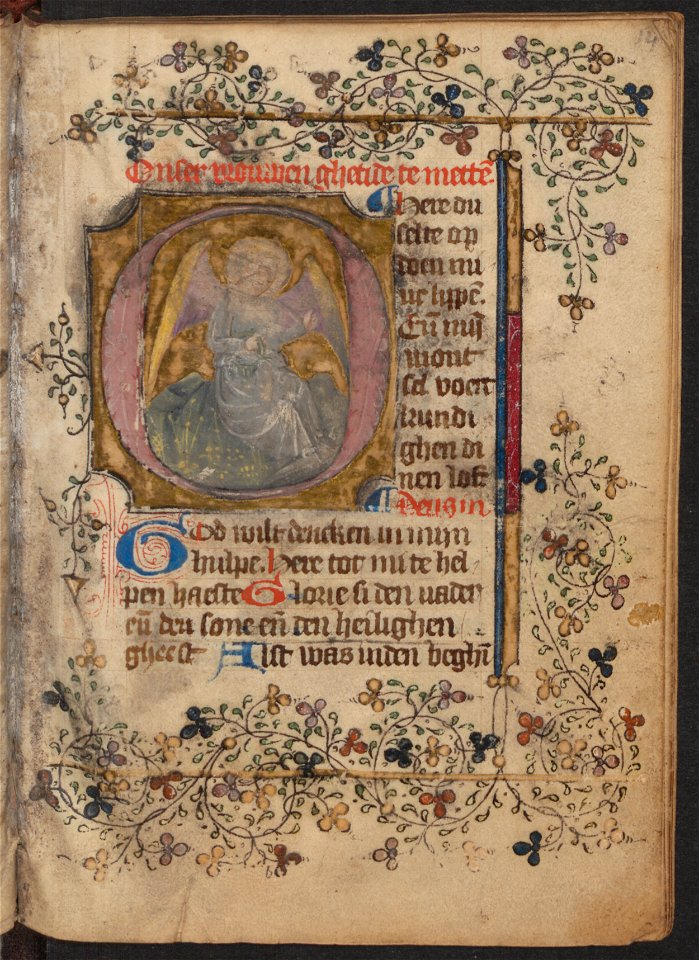 Onser vrouwen ghetide te mettē.
here du
selte op
doen mi
ne lippē.
Eñ mijn
mont
sal voert
kundi
ghen di
nen lof.
Deus in
God wilt dencken in mijn
hulpe. here tot mi te hel
pen haeste Glorie si den vader
eñ den sone eñ den heilighen
gheest Alst was inden beghī